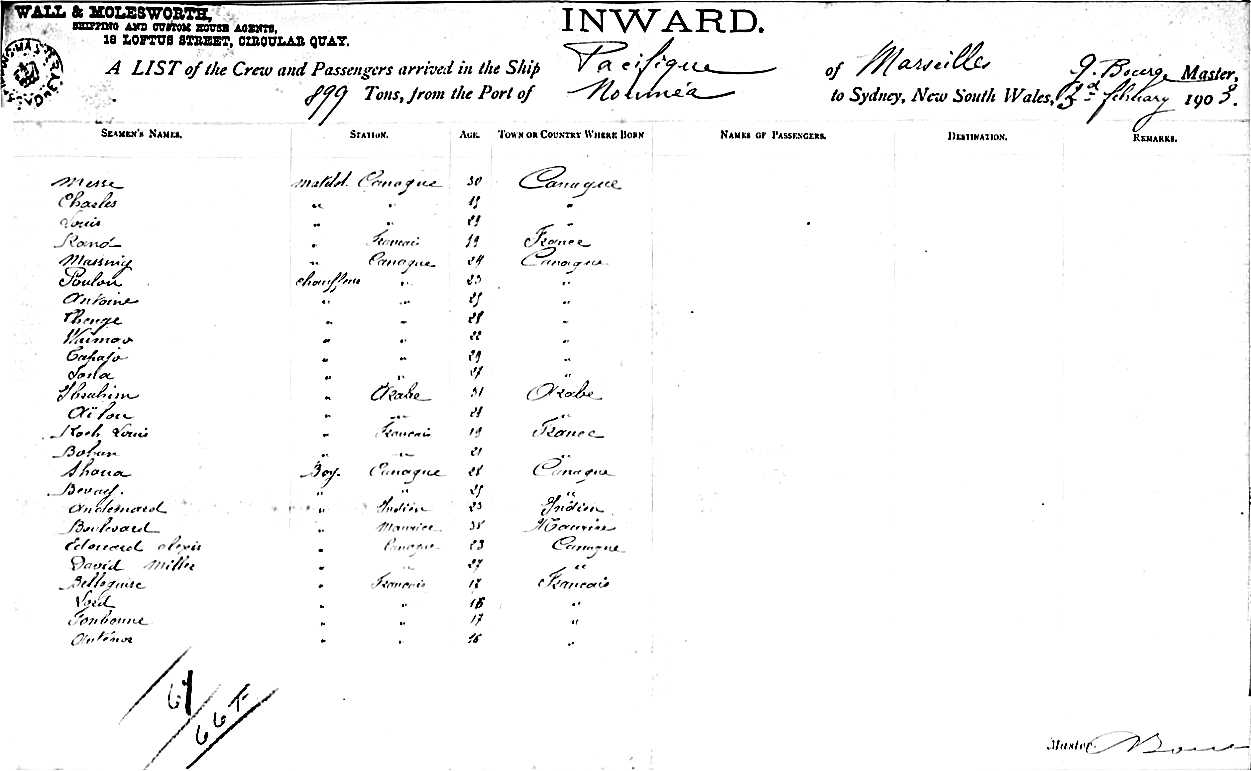 WALL & MOLESWORTH,
SHIPPING AND CUSTOM HOUSE AGENTS,
18 LOFTUS STREET, CIRCULAR QUAY.
INWARD.
A LIST of the Crew and Passengers arrived in the Ship Pacifique of Marseilles Master,
899 Tons, from the Port of Nouméa to Sydney, New South Wales, february 1903.
SEAMEN'S NAMES. STATION. AGE. TOWN OR COUNTRY WHERE BORN NAMES OF PASSENGERS. DESTINATION. REMARKS.
Messe Matelot Canaque 30 Canaque
Charles " " 19 "
Louis " "
" Francais 19 France
" Canaque 24 Canaque
Poulou chauffeur " 23 "
Antoine " " "
" " 28 "
" " 22 "
" " 29 "
" " "
Ibrahim " Arabe 31 Arabe
" " 28 "
Koch Louis " Francais 19 France
" " 21 "
Boy. Canaque 28 Canaque
" " "
" Indien 23 Indien
Boulevard " Maurice 38 Maurice
Edouard Alexis " Canaque 23 Canaque
David Miller " " 27 "
" Francais Francais
" " "
Fonbonne " " 17 "
Anténor " " 16 "
64
66
Master